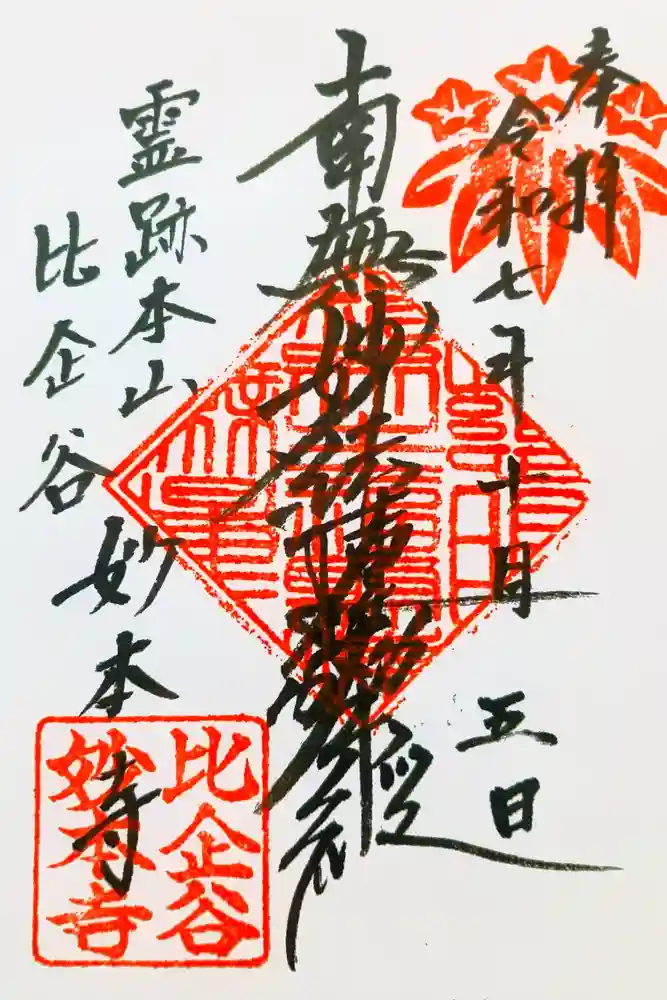 奉拝
令和七年十月五日
南無妙法蓮華経
霊跡本山
比企谷
妙本寺
比企谷
妙本寺